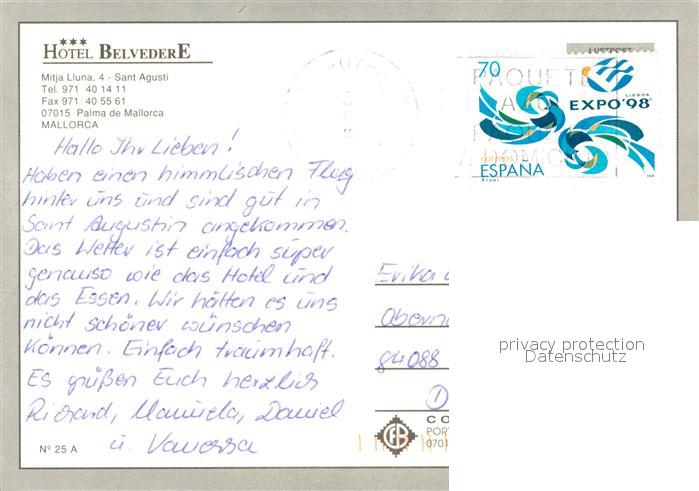 HOTEL BELVEDERE
Mitja Lluna, 4 - Sant Agustí
Tel. 971 40 14 11
Fax 971 40 55 61
07015 Palma de Mallorca
MALLORCA
Hallo Ihr Lieben!
Haben einen himmlischen Flug
hinter uns und sind gut in
Sant Augustin angekommen.
Das Wetter ist einfach super
genauso wie das Hotel und
das Essen. Wir hätten es uns
nicht schöner wünschen
können. Einfach traumhaft.
Es grüßen Euch herzlich
Richard, Manuela, Daniel
u. Vanessa
Nº 25 A
70
LISBOA
EXPO'98
correos
ESPAÑA
PAQUETE
A DOMIC
Erika
Obern
84088
privacy protection
Datenschutz
CO
POR
0701